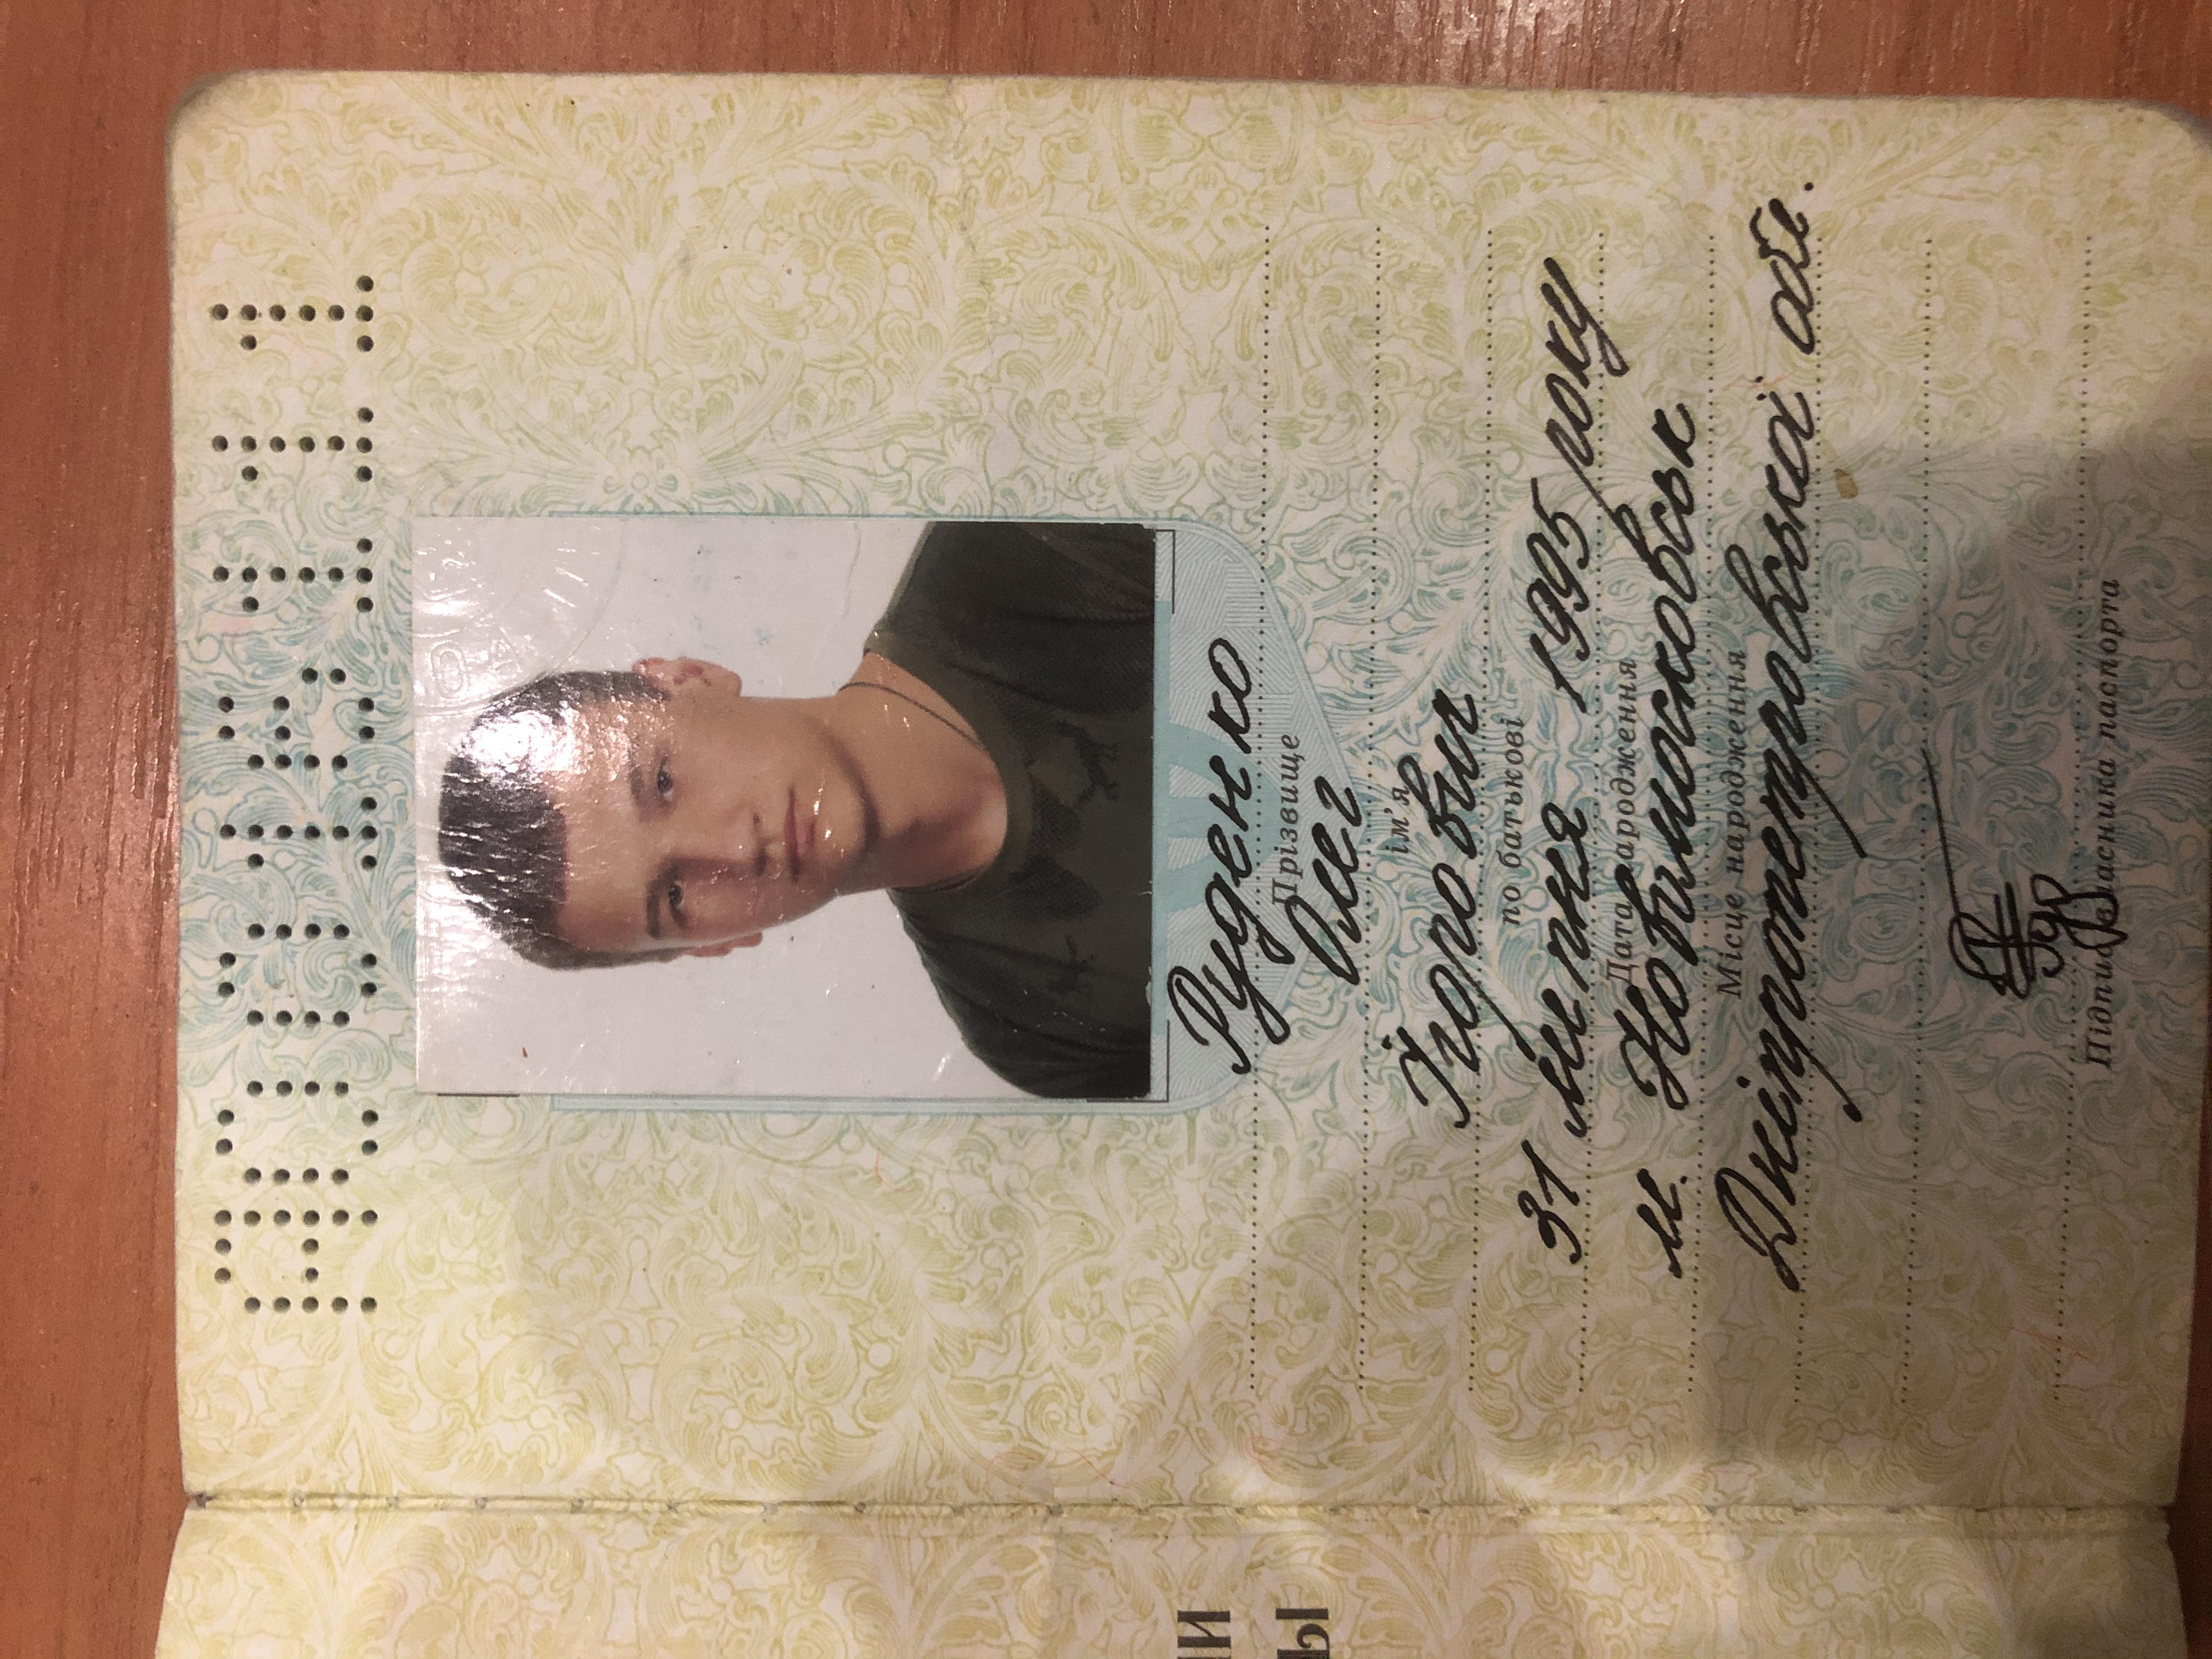 АО016111
Руденко
Прізвище
Олег
ім'я
Ігорович
по батькові
31 липня 1995 року
Дата народження
м. Новомосковськ
Місце народження
Дніпропетровської обл.
Підпис власника паспорта